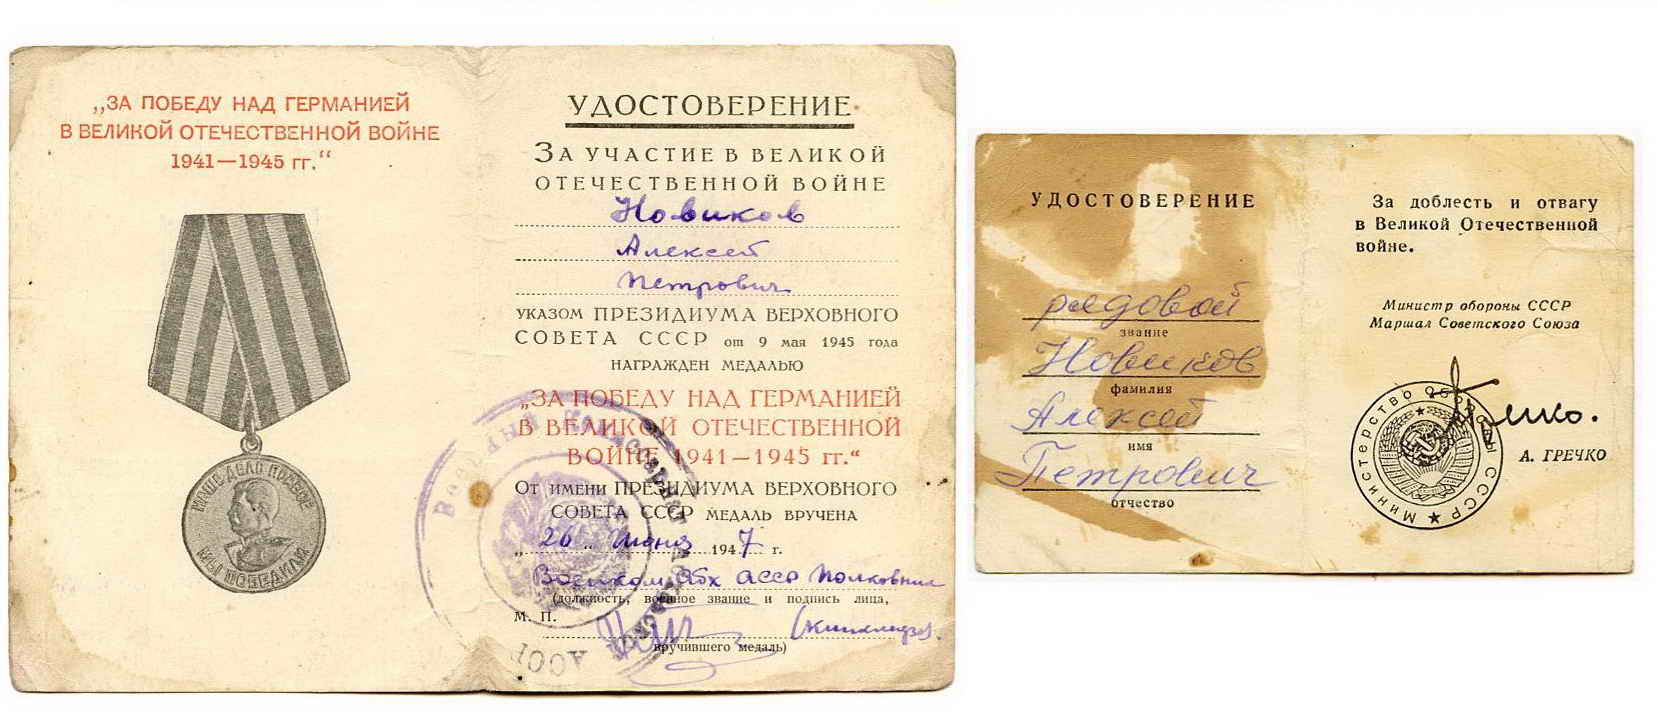 „ЗА ПОБЕДУ НАД ГЕРМАНИЕЙ
В ВЕЛИКОЙ ОТЕЧЕСТВЕННОЙ ВОЙНЕ
1941—1945 гг.“
НАШЕ ДЕЛО ПРАВОЕ
МЫ ПОБЕДИЛИ
УДОСТОВЕРЕНИЕ
ЗА УЧАСТИЕ В ВЕЛИКОЙ
ОТЕЧЕСТВЕННОЙ ВОЙНЕ
Новиков
Алексей
Петрович
УКАЗОМ ПРЕЗИДИУМА ВЕРХОВНОГО
СОВЕТА СССР от 9 мая 1945 года
НАГРАЖДЕН МЕДАЛЬЮ
„ЗА ПОБЕДУ НАД ГЕРМАНИЕЙ
В ВЕЛИКОЙ ОТЕЧЕСТВЕННОЙ
ВОЙНЕ 1941—1945 гг.“
ОТ ИМЕНИ ПРЕЗИДИУМА ВЕРХОВНОГО
СОВЕТА СССР МЕДАЛЬ ВРУЧЕНА
„26“ Июня 1947 г.
Военком Абх АССР Полковник
(должность, военное звание и подпись лица,
М. П.
вручившего медаль)
УДОСТОВЕРЕНИЕ
рядовой
звание
Новиков
фамилия
Алексей
имя
Петрович
отчество
За доблесть и отвагу
в Великой Отечественной
войне.
Министр обороны СССР
Маршал Советского Союза
Министерство Обороны СССР
А. ГРЕЧКО